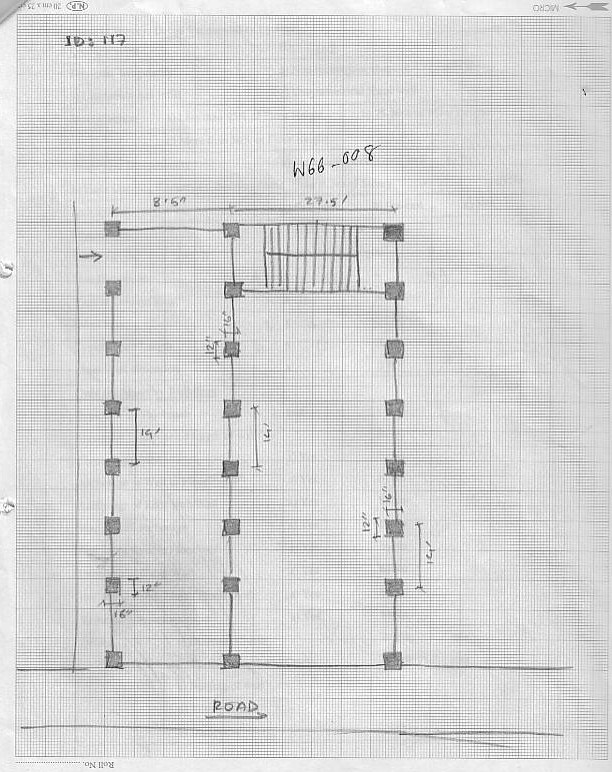 MICRO
20 cm x 25
ID: 117
N66-008
8.5"
27.5'
16"
12"
14'
14'
16"
12"
14'
12"
16"
ROAD
Roll No.